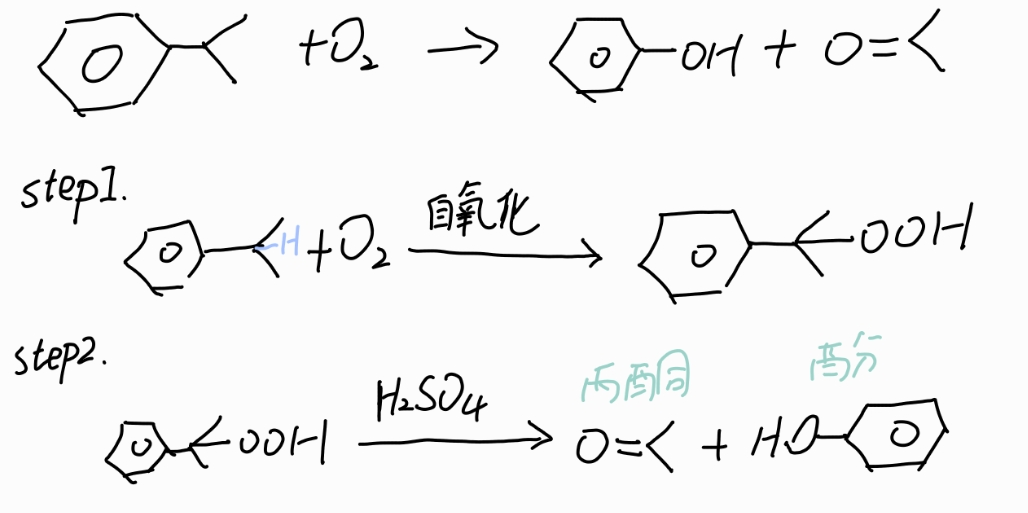 +O₂ → -OH + O=
step1.
-H +O₂ 自氧化 -OOH
step2.
丙酮 酚
-OOH H₂SO₄ O= + HO-